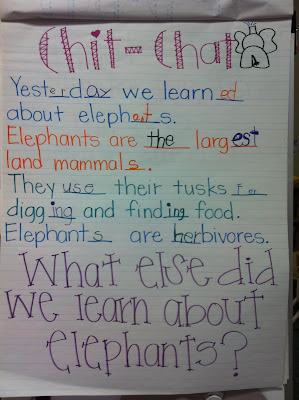 Chit-Chat
Yesterday we learned
about elephants.
Elephants are the largest
land mammals.
They use their tusks for
digging and finding food.
Elephants are herbivores.
What else did
we learn about
elephants?